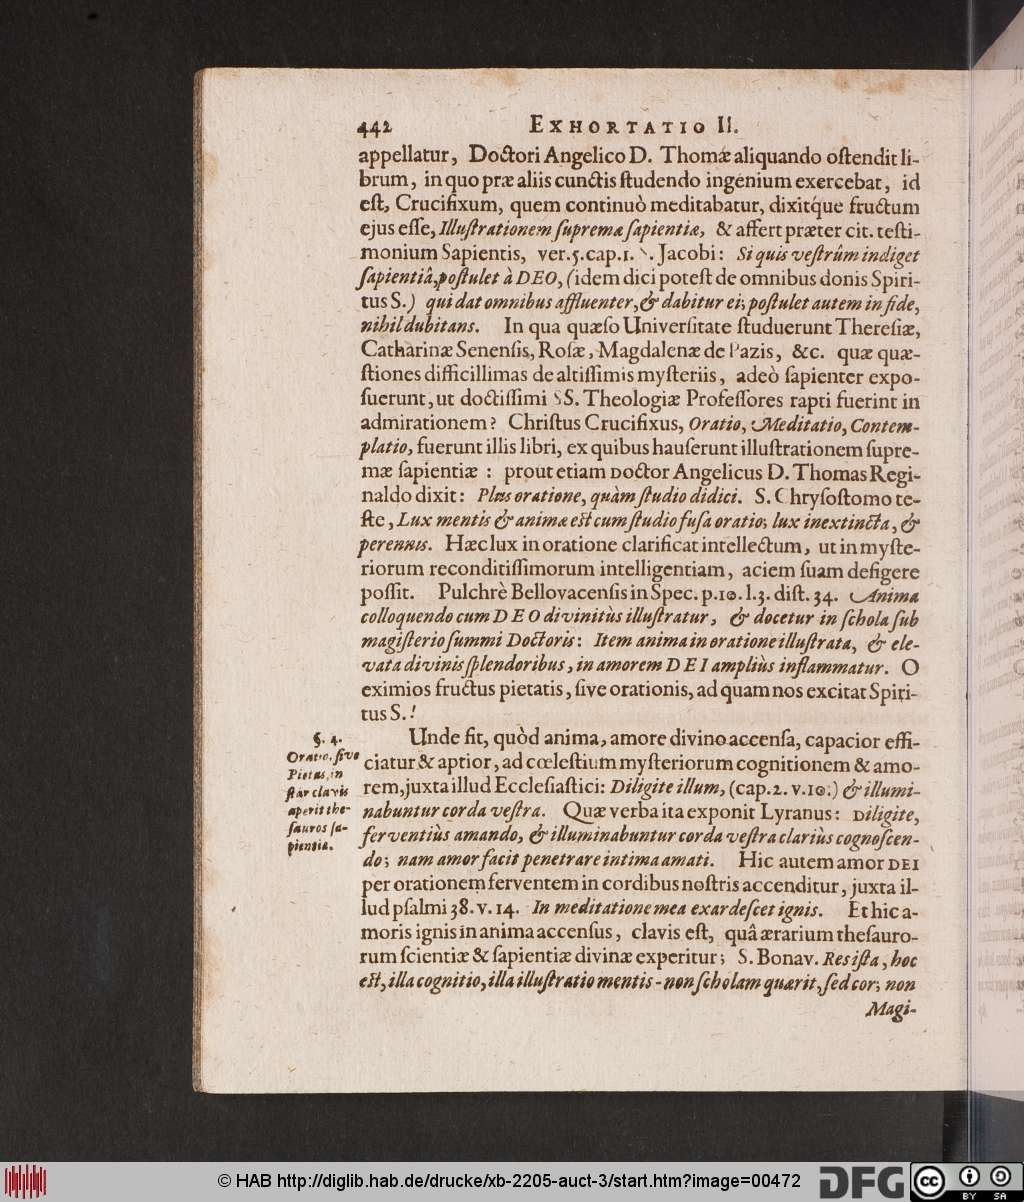 442 EXHORTATIO II.
appellatur, Doctori Angelico D. Thomæ aliquando oſtendit li-
brum, in quo præ aliis cunctis ſtudendo ingenium exercebat, id
eſt, Crucifixum, quem continuò meditabatur, dixitq́ue fructum
ejus eſſe, Illuſtrationem ſupremæ ſapientiæ, & affert præter cit. teſti-
monium Sapientis, ver.5.cap.1. S. Jacobi: Si quis veſtrûm indiget
ſapientiâ, poſtulet à DEO, (idem dici poteſt de omnibus donis Spiri-
tus S.) qui dat omnibus affluenter, & dabitur ei; poſtulet autem in fide,
nihil dubitans. In qua quæſo Univerſitate ſtuduerunt Thereſiæ,
Catharinæ Senenſis, Roſæ, Magdalenæ de Pazis, &c. quæ quæ-
ſtiones difficillimas de altiſſimis myſteriis, adeò ſapienter expo-
ſuerunt, ut doctiſſimi SS. Theologiæ Profeſſores rapti fuerint in
admirationem? Chriſtus Crucifixus, Oratio, Meditatio, Contem-
platio, fuerunt illis libri, ex quibus hauſerunt illuſtrationem ſupre-
mæ ſapientiæ : prout etiam Doctor Angelicus D. Thomas Regi-
naldo dixit: Plus oratione, quàm ſtudio didici. S. Chryſoſtomo te-
ſte, Lux mentis & animæ eſt cum ſtudio fuſa oratio; lux inextincta, &
perennis. Hæc lux in oratione clarificat intellectum, ut in myſte-
riorum reconditiſſimorum intelligentiam, aciem ſuam defigere
poſſit. Pulchrè Bellovacenſis in Spec. p.10. l.3. diſt. 34. Anima
colloquendo cum DEO divinitùs illuſtratur, & docetur in ſchola ſub
magiſterio ſummi Doctoris: Item anima in oratione illuſtrata, & ele-
vata divinis ſplendoribus, in amorem DEI ampliùs inflammatur. O
eximios fructus pietatis, ſive orationis, ad quam nos excitat Spiri-
tus S.!
§. 4.
Oratio, ſive
Pietas, in
ſtar clavis
aperit the-
ſauros ſa-
pientiæ.
Unde fit, quòd anima, amore divino accenſa, capacior effi-
ciatur & aptior, ad cœleſtium myſteriorum cognitionem & amo-
rem, juxta illud Eccleſiaſtici: Diligite illum, (cap.2. v.10.) & illumi-
nabuntur corda veſtra. Quæ verba ita exponit Lyranus: Diligite,
ferventiùs amando, & illuminabuntur corda veſtra clariùs cognoſcen-
do; nam amor facit penetrare intima amati. Hic autem amor DEI
per orationem ferventem in cordibus noſtris accenditur, juxta il-
lud pſalmi 38. v. 14. In meditatione mea exardeſcet ignis. Et hic a-
moris ignis in anima accenſus, clavis eſt, quâ ærarium theſauro-
rum ſcientiæ & ſapientiæ divinæ experitur; S. Bonav. Res iſta, hoc
eſt, illa cognitio, illa illuſtratio mentis - non ſcholam quærit, ſed cor; non
Magi-
© HAB http://diglib.hab.de/drucke/xb-2205-auct-3/start.htm?image=00472
DFG
cc
BY SA